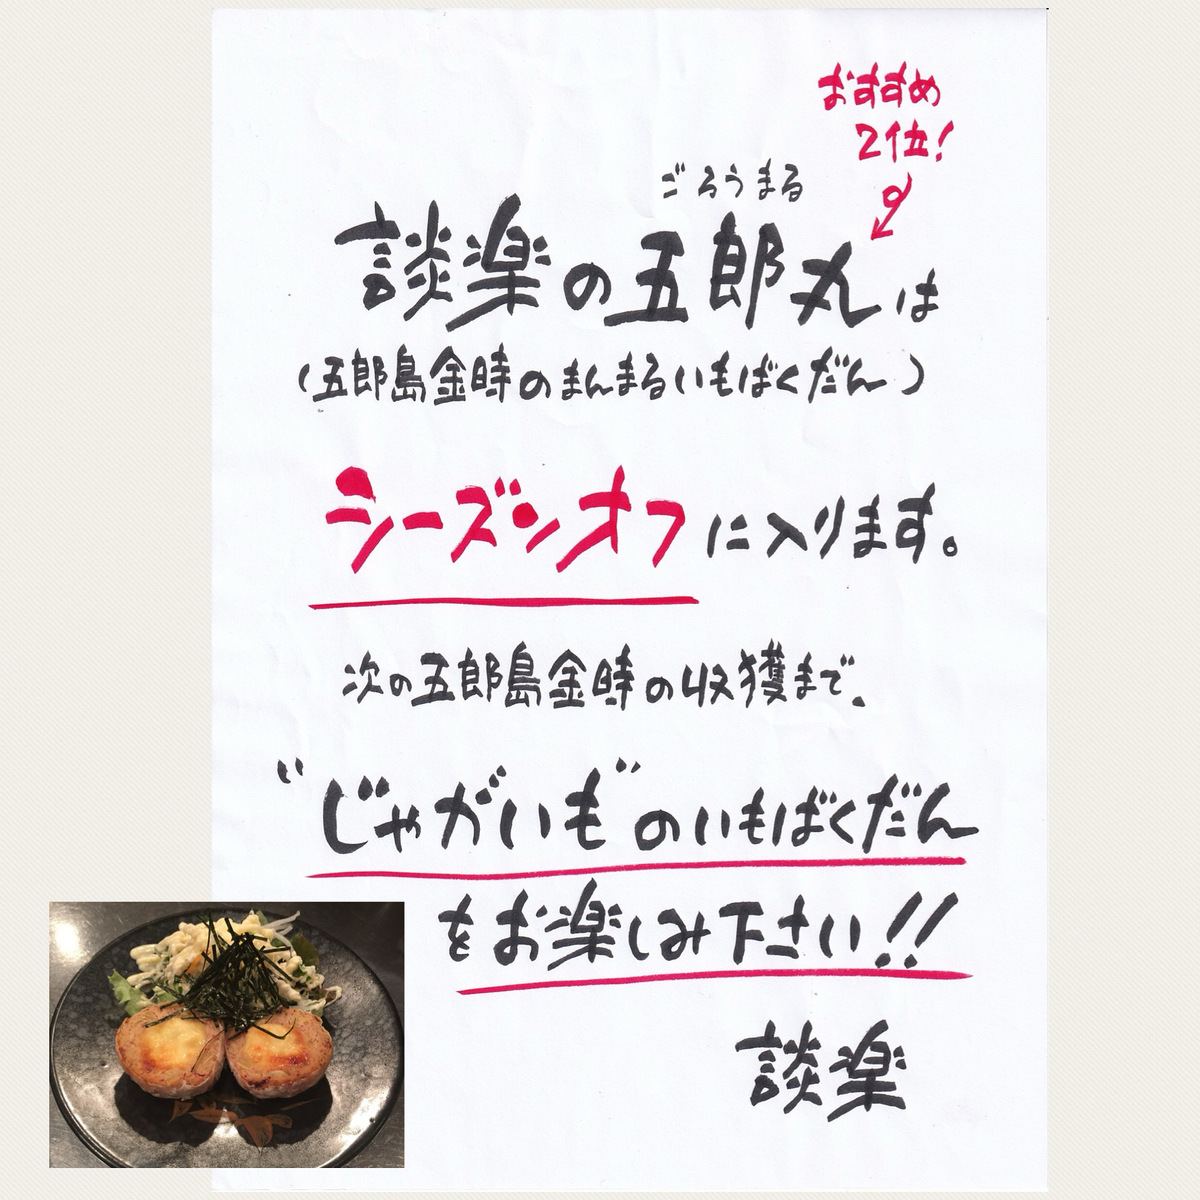 おすすめ
2位!
ごろうまる
談楽の五郎丸は
(五郎島金時のまんまるいもばくだん)
シーズンオフに入ります。
次の五郎島金時の収獲まで、
"じゃがいも"のいもばくだん
をお楽しみ下さい!!
談楽